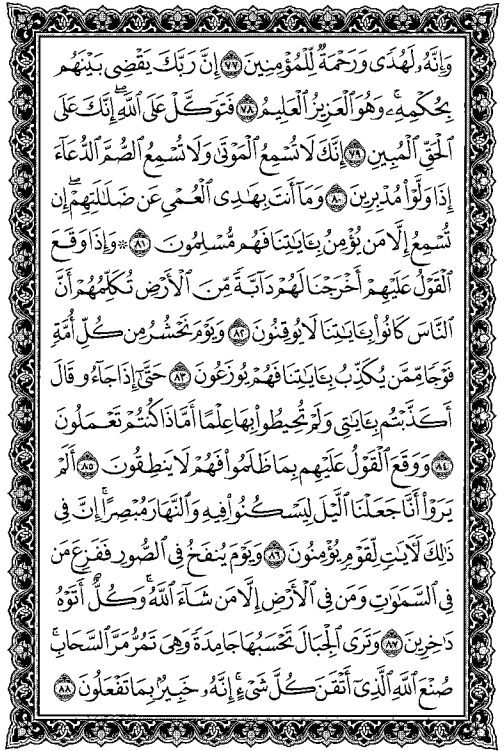 وَإِنَّهُۥ لَهُدًى وَرَحْمَةٌ لِّلْمُؤْمِنِينَ ٧٧ إِنَّ رَبَّكَ يَقْضِى بَيْنَهُم
بِحُكْمِهِۦۚ وَهُوَ ٱلْعَزِيزُ ٱلْعَلِيمُ ٧٨ فَتَوَكَّلْ عَلَى ٱللَّهِۖ إِنَّكَ عَلَى
ٱلْحَقِّ ٱلْمُبِينِ ٧٩ إِنَّكَ لَا تُسْمِعُ ٱلْمَوْتَىٰ وَلَا تُسْمِعُ ٱلصُّمَّ ٱلدُّعَآءَ
إِذَا وَلَّوْا۟ مُدْبِرِينَ ٨٠ وَمَآ أَنتَ بِهَٰدِى ٱلْعُمْىِ عَن ضَلَٰلَتِهِمْۖ إِن
تُسْمِعُ إِلَّا مَن يُؤْمِنُ بِـَٔايَٰتِنَا فَهُم مُّسْلِمُونَ ٨١ ۞ وَإِذَا وَقَعَ
ٱلْقَوْلُ عَلَيْهِمْ أَخْرَجْنَا لَهُمْ دَآبَّةً مِّنَ ٱلْأَرْضِ تُكَلِّمُهُمْ أَنَّ
ٱلنَّاسَ كَانُوا۟ بِـَٔايَٰتِنَا لَا يُوقِنُونَ ٨٢ وَيَوْمَ نَحْشُرُ مِن كُلِّ أُمَّةٍ
فَوْجًا مِّمَّن يُكَذِّبُ بِـَٔايَٰتِنَا فَهُمْ يُوزَعُونَ ٨٣ حَتَّىٰٓ إِذَا جَآءُو قَالَ
أَكَذَّبْتُم بِـَٔايَٰتِى وَلَمْ تُحِيطُوا۟ بِهَا عِلْمًا أَمَّاذَا كُنتُمْ تَعْمَلُونَ
٨٤ وَوَقَعَ ٱلْقَوْلُ عَلَيْهِم بِمَا ظَلَمُوا۟ فَهُمْ لَا يَنطِقُونَ ٨٥ أَلَمْ
يَرَوْا۟ أَنَّا جَعَلْنَا ٱلَّيْلَ لِيَسْكُنُوا۟ فِيهِ وَٱلنَّهَارَ مُبْصِرًاۚ إِنَّ فِى
ذَٰلِكَ لَءَايَٰتٍ لِّقَوْمٍ يُؤْمِنُونَ ٨٦ وَيَوْمَ يُنفَخُ فِى ٱلصُّورِ فَفَزِعَ مَن
فِى ٱلسَّمَٰوَٰتِ وَمَن فِى ٱلْأَرْضِ إِلَّا مَن شَآءَ ٱللَّهُۚ وَكُلٌّ أَتَوْهُ
دَٰخِرِينَ ٨٧ وَتَرَى ٱلْجِبَالَ تَحْسَبُهَا جَامِدَةً وَهِىَ تَمُرُّ مَرَّ ٱلسَّحَابِۚ
صُنْعَ ٱللَّهِ ٱلَّذِىٓ أَتْقَنَ كُلَّ شَىْءٍۚ إِنَّهُۥ خَبِيرٌۢ بِمَا تَفْعَلُونَ ٨٨